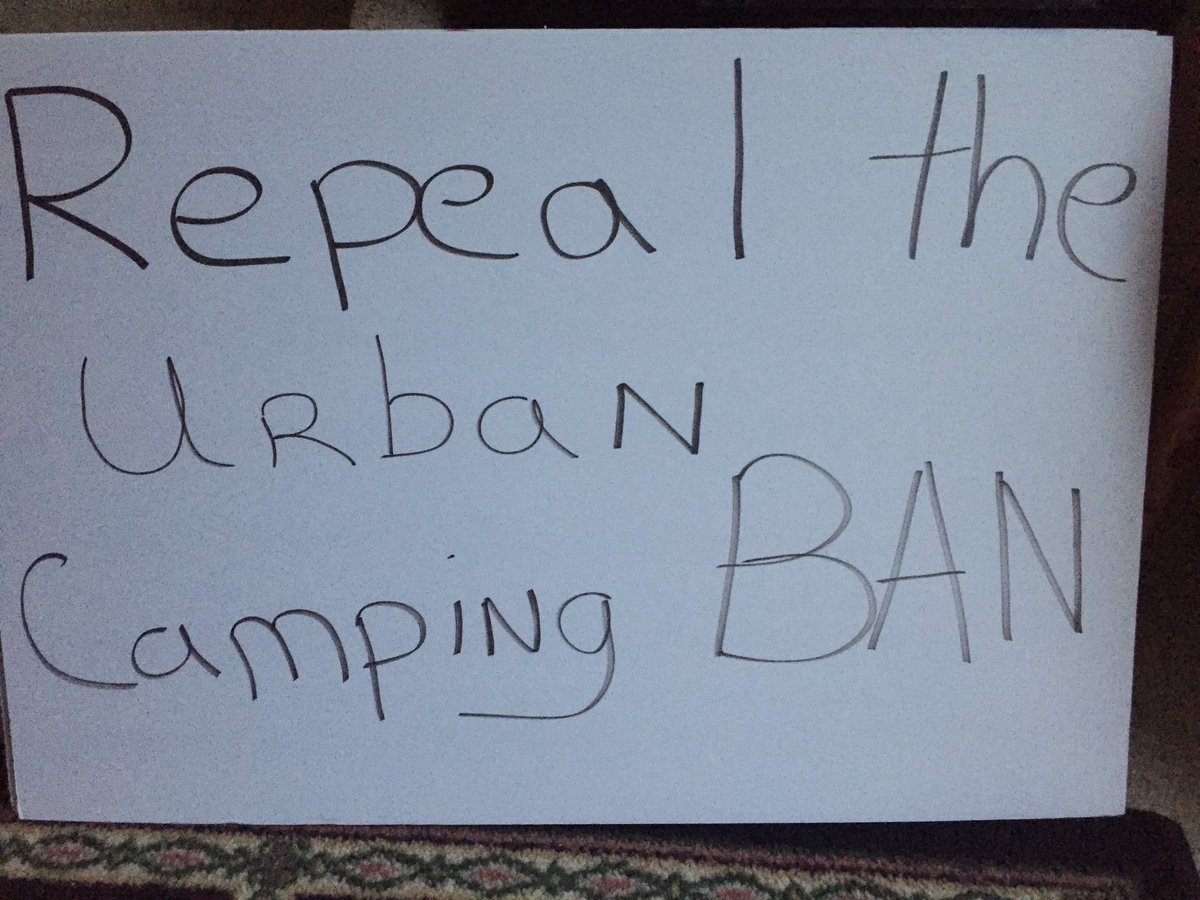 Repeal the
Urban
Camping BAN